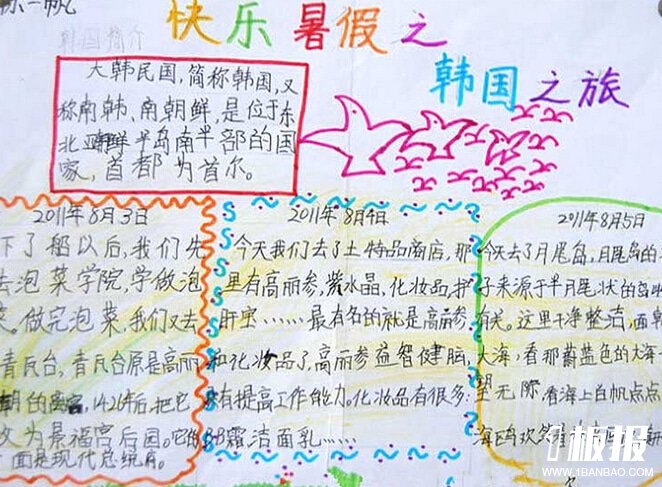 一帆
快乐暑假之
韩国之旅
韩国简介
大韩民国,简称韩国,又
称南韩、南朝鲜,是位于东
北亚朝鲜半岛南半部的国
家,首都为首尔。
2011年8月3日
下了船以后,我们先
去泡菜学院,学做泡
菜,做完泡菜,我们又去
青瓦台,青瓦台原是高丽
的离宫,1426年后,把它
改为景福宫后园。它的
面是现代总统府。
2011年8月4日
今天我们去了土特品商店,那
里有高丽参,紫水晶,化妆品,护
肝宝……最有名的就是高丽参,
和化妆品了,高丽参益智健脑,
有提高工作能力。化妆品有很多:
BB霜,洁面乳……
2011年8月5日
今天去了月尾岛,月尾岛的名
子来源于半月尾状的岛
有关。这里干净整洁,面朝
大海,看那蔚蓝色的大海
望无际,看海上白帆点点
海鸥欢
板报
WWW.1BANBAO.COM